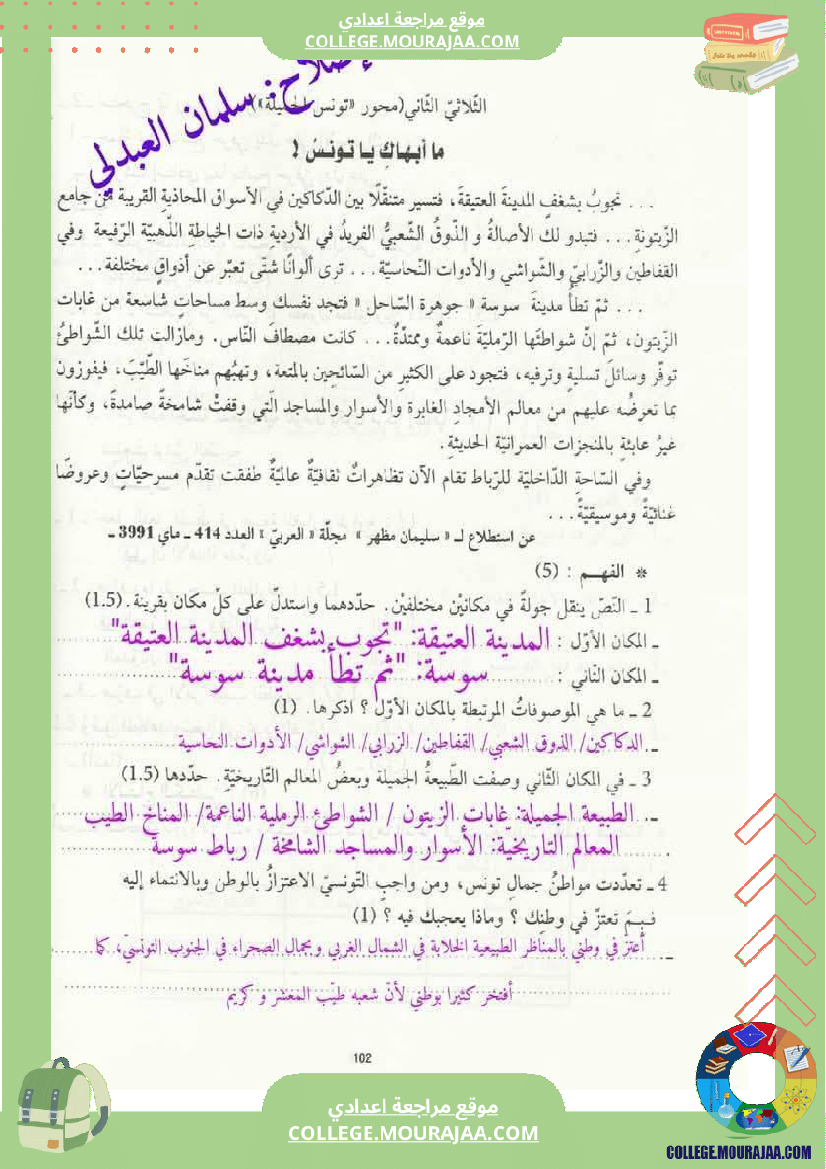 موقع مراجعة اعدادي
COLLEGE.MOURAJAA.COM
إصلاح: سلمان العبدلي
الثّلاثيّ الثّاني(محور «تونس الجميلة»)
ما أبهاكِ يا تونسُ !
... تجوبُ بشغفٍ المدينةَ العتيقةَ، فتسير متنقّلًا بين الدّكاكين في الأسواق المحاذيةِ القريبة من جامع
الزّيتونةِ... فتبدو لك الأصالةُ و الذّوقُ الشّعبيُّ الفريدُ في الأرديةِ ذات الخياطةِ الذّهبيّة الرّفيعة وفي
القفاطين والزّرابيّ والشّواشي والأدوات النّحاسيّة... ترى ألوانًا شتّى تعبّر عن أذواقٍ مختلفة...
... ثمّ تطأُ مدينةَ سوسة « جوهرة السّاحل » فتجد نفسك وسط مساحاتٍ شاسعة من غابات
الزّيتون، ثمّ إنّ شواطئَها الرّمليّةَ ناعمةٌ وممتدّةٌ... كانت مصطافَ النّاس. ومازالت تلك الشّواطئُ
توفّر وسائلَ تسليةٍ وترفيه، فتجود على الكثيرِ من السّائحين بالمتعة، وتهبُهم مناخَها الطّيّبَ، فيفوزون
بما تعرضُه عليهم من معالم الأمجادِ الغابرة والأسوار والمساجد الّتي وقفتْ شامخةً صامدةً، وكأنّها
غيرُ عابئةٍ بالمنجزات العمرانيّة الحديثةِ.
وفي السّاحةِ الدّاخليّة للرّباط تقام الآن تظاهراتٌ ثقافيّةٌ عالميّةٌ طفقت تقدّم مسرحيّاتٍ وعروضًا
غنائيّةً وموسيقيّةً...
عن استطلاع لـ « سليمان مظهر » مجلّة « العربيّ » العدد 414 ــ ماي 3991 ــ
* الفهـم : (5)
1 ــ النّصّ ينقل جولةً في مكانيْن مختلفيْن. حدّدهما واستدلّ على كلّ مكان بقرينة. (1.5)
ــ المكان الأوّل : المدينة العتيقة: "تجوب بشغف المدينة العتيقة"
ــ المكان الثّاني : سوسة: "ثم تطأ مدينة سوسة"
2 ــ ما هي الموصوفاتُ المرتبطة بالمكان الأوّل ؟ اذكرها. (1)
ــ الدكاكين/ الذوق الشعبي/ القفاطين/ الزرابي/ الشواشي/ الأدوات النحاسية
3 ــ في الكان الثّاني وصفت الطّبيعةُ الجميلة وبعضُ المعالم التّاريخيّة. حدّدها (1.5)
ــ الطبيعة الجميلة: غابات الزيتون / الشواطئ الرملية الناعمة/ المناخ الطيب
المعالم التاريخيّة: الأسوار والمساجد الشامخة / رباط سوسة
4 ــ تعدّدت مواطنُ جمالِ تونس، ومن واجبِ التّونسيّ الاعتزازُ بالوطن وبالانتماء إليه
فـبـمَ تعتزّ في وطنك ؟ وماذا يعجبك فيه ؟ (1)
ــ أعتزّ في وطني بالمناظر الطبيعية الخلابة في الشمال الغربي وبجمال الصحراء في الجنوب التونسيّ، كما
أفتخر كثيرا بوطني لأنّ شعبه طيّب المعشر و كريم
102
موقع مراجعة اعدادي
COLLEGE.MOURAJAA.COM
COLLEGE.MOURAJAA.COM